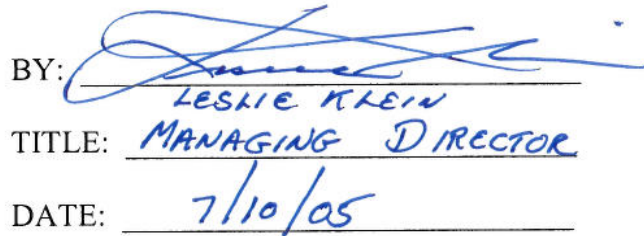 BY:
LESLIE KLEIN
TITLE: MANAGING DIRECTOR
DATE: 7/10/05